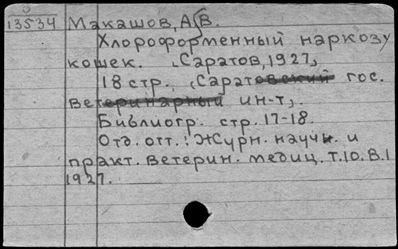 13534 Макашов, А.В.
Хлороформенный наркозу
кошек. Саратов, 1927,
18 стр., (Саратовский гос.
ветеринарный ин-т).
Библиогр. стр. 17-18.
Отд. отт.: Журн. научн. и
практ. ветерин. медиц. т.10. В.1
1927.